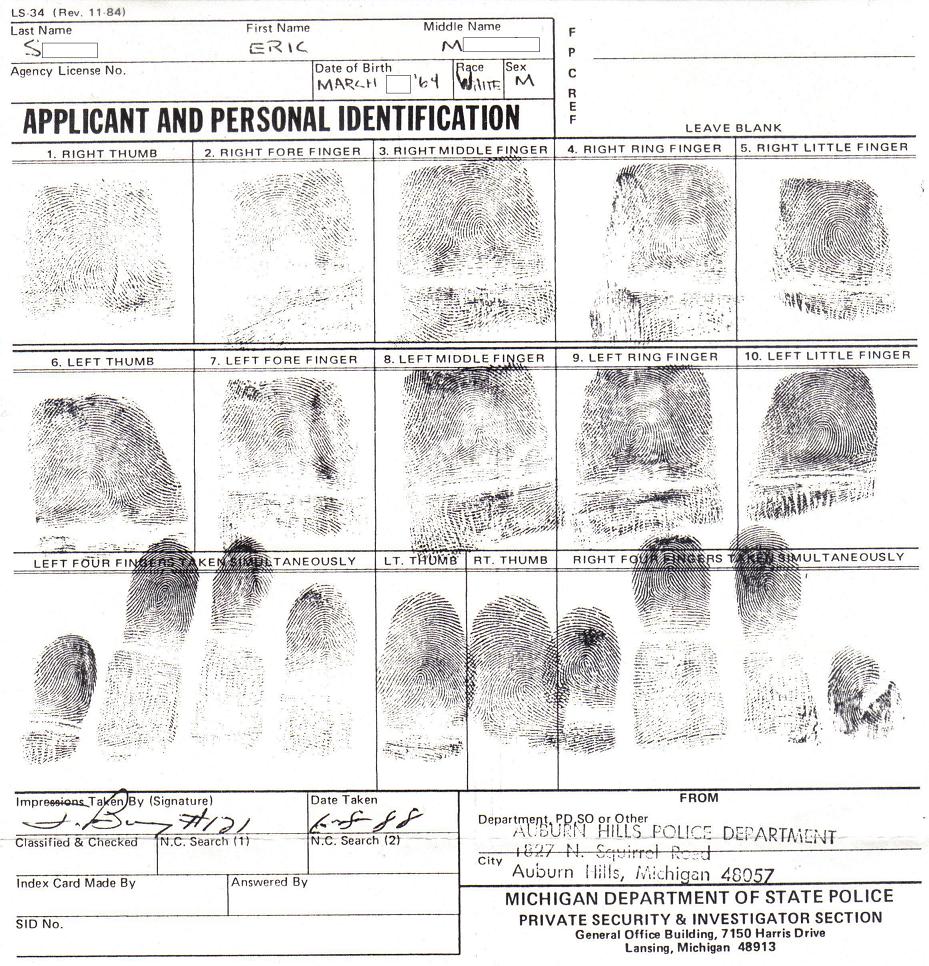 LS-34 (Rev. 11-84)
Last Name First Name Middle Name
S ERIC M
Agency License No. Date of Birth Race Sex
MARCH '64 WHITE M
F
P
C
R
E
F
APPLICANT AND PERSONAL IDENTIFICATION
LEAVE BLANK
1. RIGHT THUMB 2. RIGHT FORE FINGER 3. RIGHT MIDDLE FINGER 4. RIGHT RING FINGER 5. RIGHT LITTLE FINGER
6. LEFT THUMB 7. LEFT FORE FINGER 8. LEFT MIDDLE FINGER 9. LEFT RING FINGER 10. LEFT LITTLE FINGER
LEFT FOUR FINGERS TAKEN SIMULTANEOUSLY LT. THUMB RT. THUMB RIGHT FOUR FINGERS TAKEN SIMULTANEOUSLY
Impressions Taken By (Signature) Date Taken
#121 88
Classified & Checked N.C. Search (1) N.C. Search (2)
Index Card Made By Answered By
SID No.
FROM
Department, PD, SO or Other
AUBURN HILLS POLICE DEPARTMENT
1827 N. Squirrel Road
City
Auburn Hills, Michigan 48057
MICHIGAN DEPARTMENT OF STATE POLICE
PRIVATE SECURITY & INVESTIGATOR SECTION
General Office Building, 7150 Harris Drive
Lansing, Michigan 48913